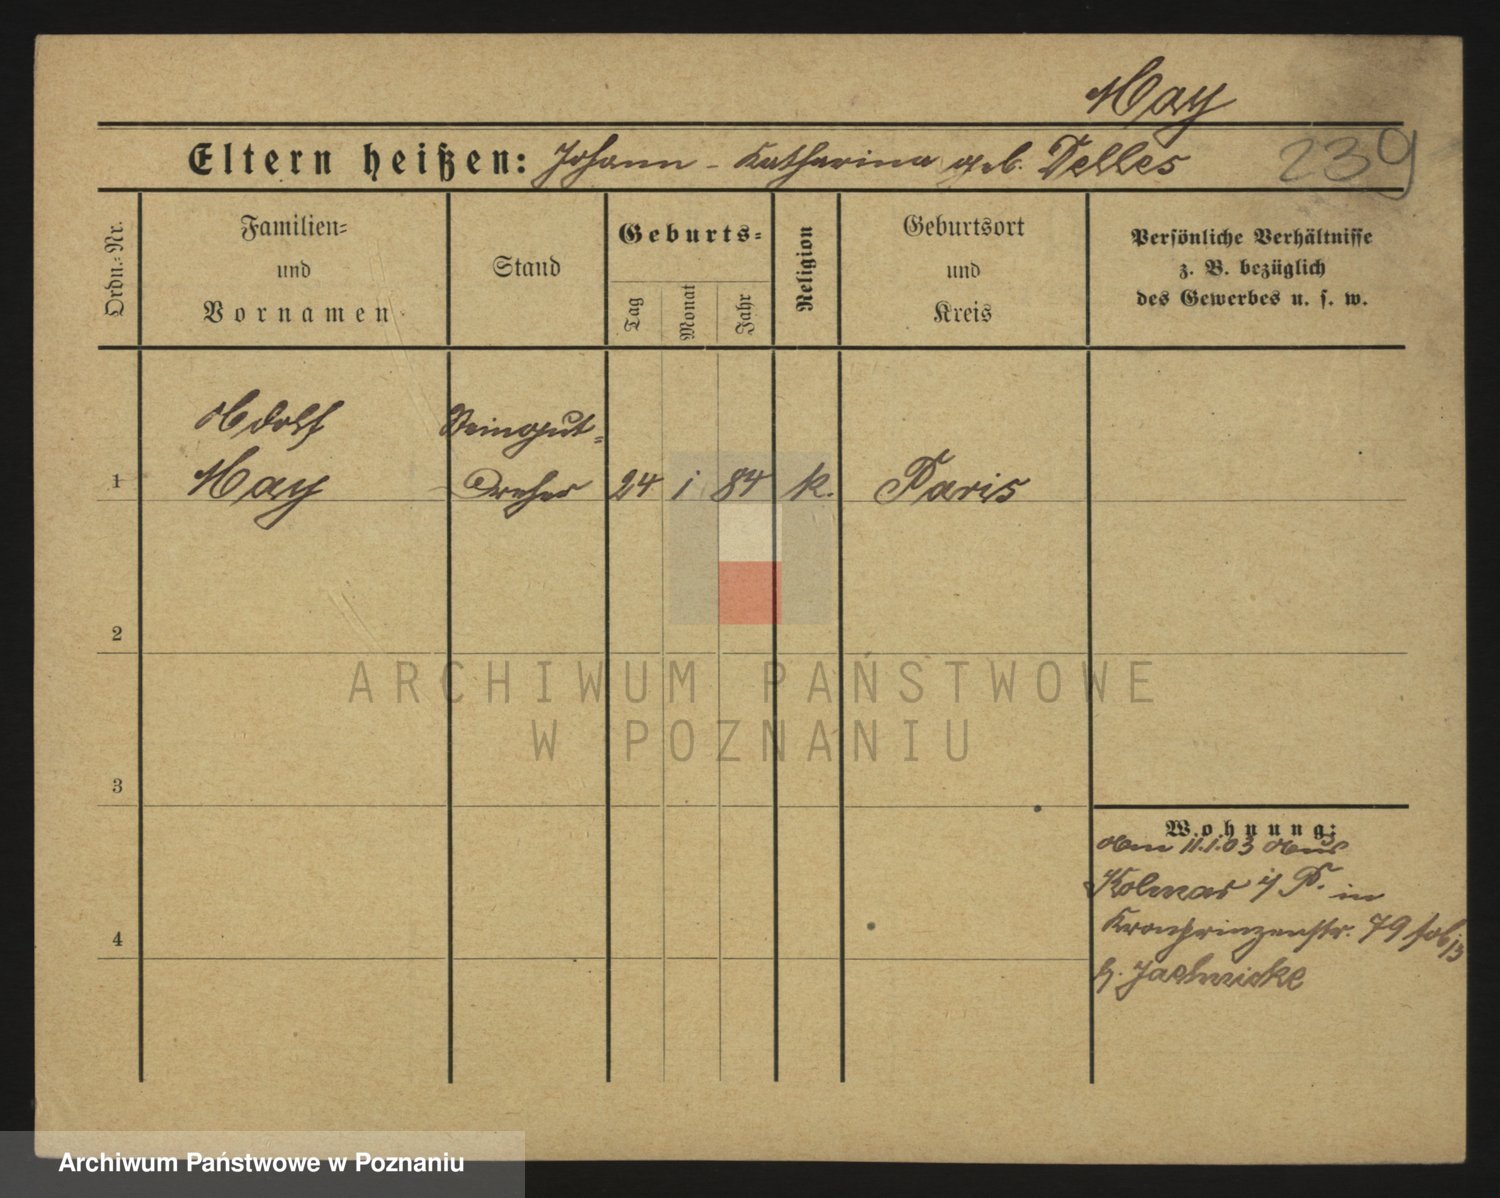 May
Eltern heißen: Johann - Katharina geb. Delles
239
Ordn.-Nr.
Familien-
und
Vornamen
Stand
Geburts-
Tag
Monat
Jahr
Religion
Geburtsort
und
Kreis
Persönliche Verhältnisse
z. B. bezüglich
des Gewerbes u. s. w.
Adolf
May
Dreher
1
24 1 84 k. Paris
2
ARCHIWUM PAŃSTWOWE
W POZNANIU
3
Wohnung:
Am 11.1.03 Aus
Kolmar i/P. in
Kronprinzenstr. 79
b. Jachnicke
4
Archiwum Państwowe w Poznaniu